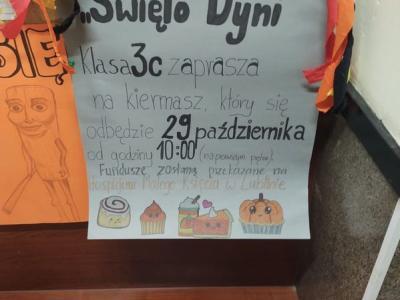 „Święto Dyni
Klasa 3c zaprasza
na kiermasz, który się
odbędzie 29 października
od godziny 10:00 (na powyższym piętrze)
Fundusze zostaną przekazane na
Hospicjum Małego Księcia w Lublinie
BIĘ